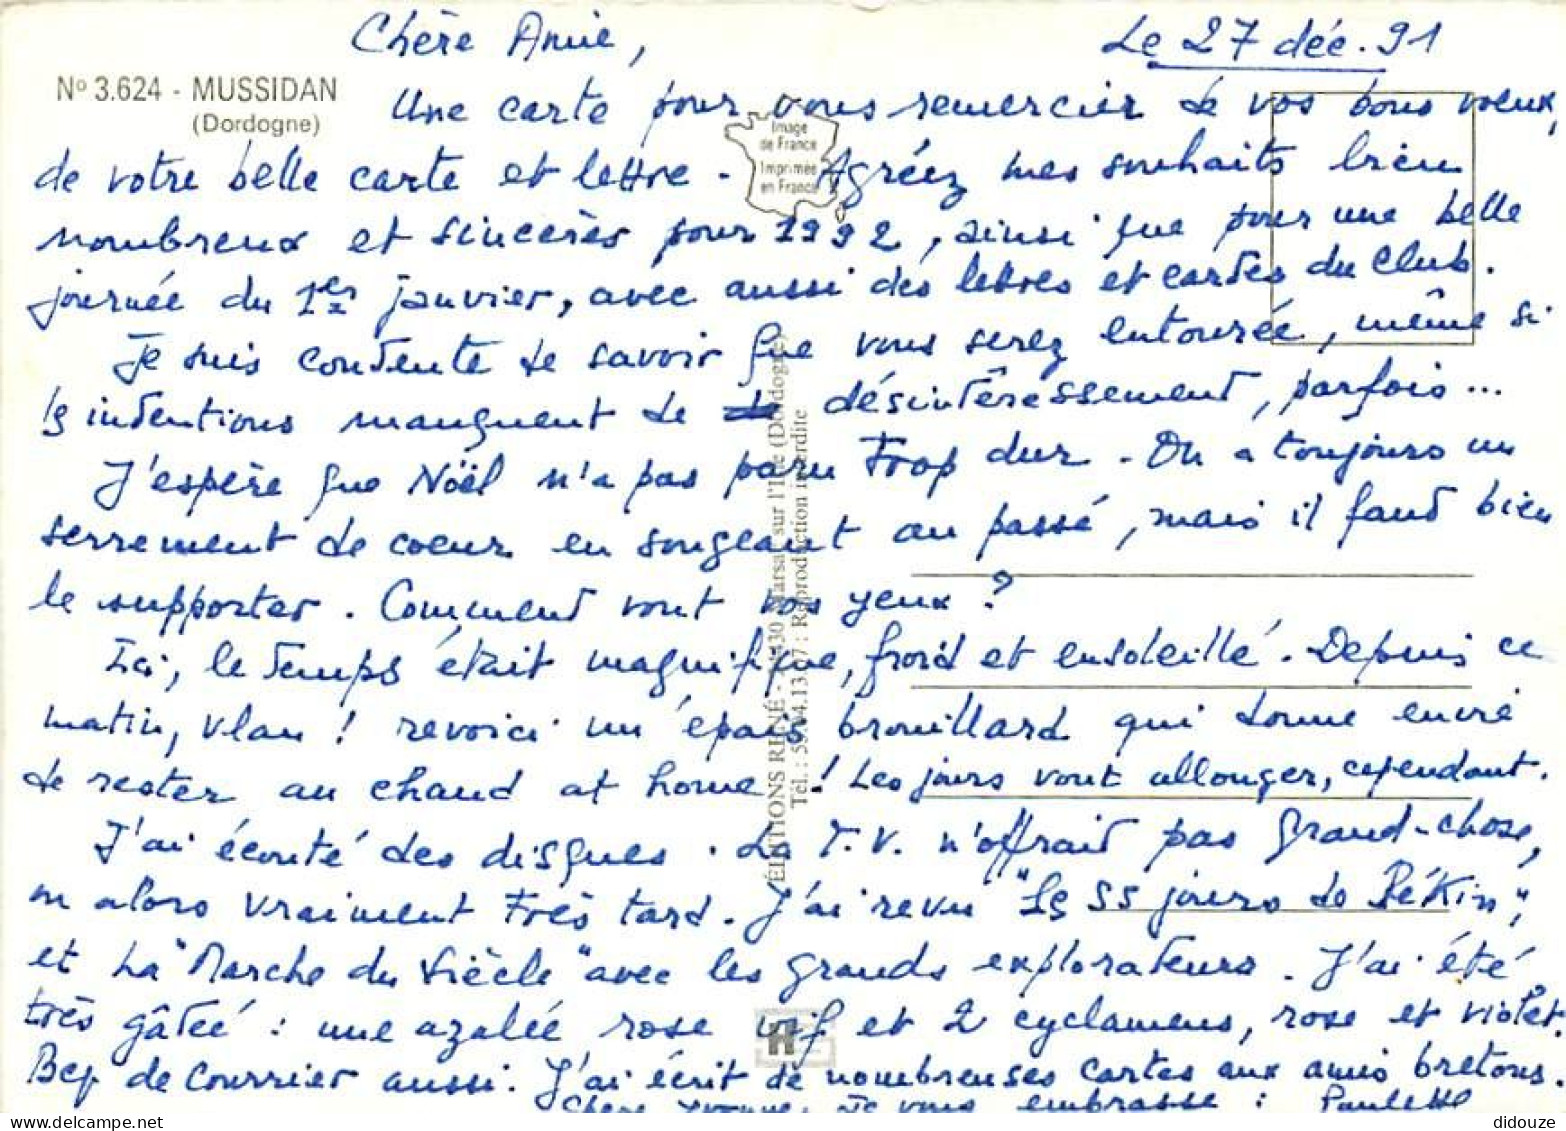 Chère Amie,
Le 27 déc. 91
Nº 3.624 - MUSSIDAN
(Dordogne)
Une carte pour vous remercier de vos bons voeux,
Image
de France
Imprimée
en France
de votre belle carte et lettre. Agréez mes souhaits bien
nombreux et sincères pour 1992, ainsi que pour une belle
journée du 1er janvier, avec aussi des lettres et cartes du Club.
Je suis contente de savoir que vous serez entourée, même si
ls intentions manquent de désintéressement, parfois...
J'espère que Noël n'a pas paru trop dur. On a toujours un
serrement de coeur en songeant au passé, mais il faut bien
le supporter. Comment vont vos yeux ?
Ici, le temps était magnifique, froid et ensoleillé. Depuis ce
matin, vlan ! revoici un épais brouillard qui donne envie
de rester au chaud at home ! Les jours vont allonger, cependant.
J'ai écouté des disques. La T.V. n'offrait pas grand-chose,
ou alors vraiment très tard. J'ai revu "Ls 55 jours de Pékin",
et La "Marche du siècle" avec les grands explorateurs. J'ai été
très gâtée : une azalée rose vif et 2 cyclamens, rose et violet.
Bcp de courrier aussi. J'ai écrit de nombreuses cartes aux amis bretons.
Chère Yvonne, Je vous embrasse : Paulette
ÉDITIONS RENÉ - 24430 Marsac sur l'Isle (Dordogne)
Reproduction interdite
didouze